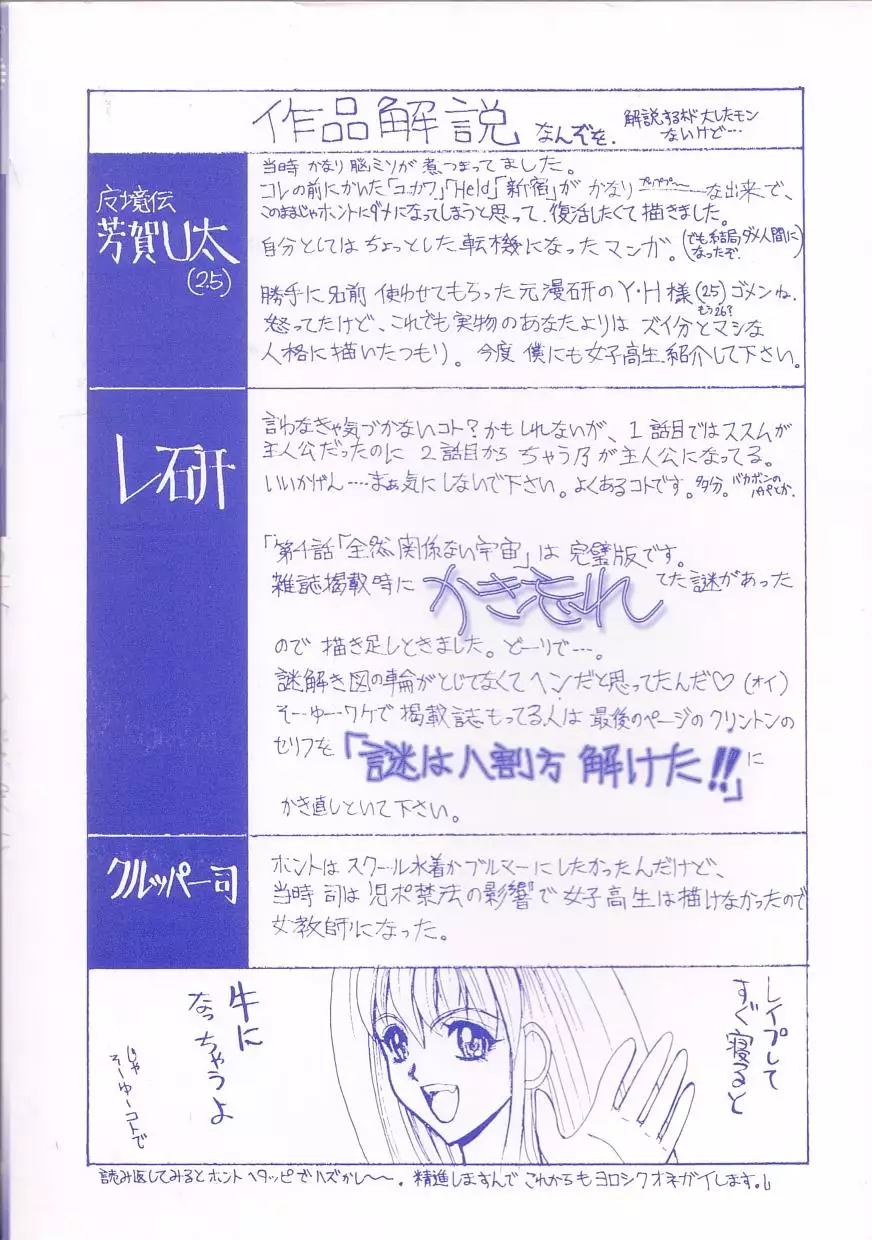 作品解説 なんぞを。
解説するホド大したモン
ないけど…
反境伝
芳賀U太
(25)
当時 かなり脳ミソが煮つまってました。
コレの前にかいた「ユカワ」「Held」「新宿」が かなり プップププ〜 な出来で、
このままじゃホントにダメになってしまうと思って、復活したくて描きました。
自分としてはちょっとした転機になったマンガ。(でも結局ダメ人間に
なったぞ)
勝手に名前 使わせてもらった元漫研のY・H様(25)ゴメンね。
もう26?
怒ってたけど、これでも実物のあなたよりは ズイ分とマシな
人格に描いたつもり)。今度 僕にも女子高生 紹介して下さい。
レ研
言わなきゃ気づかないコト?かもしれないが、1話目ではススムが
主人公だったのに 2話目から ちゃう乃が主人公になってる。
いいかげん…まぁ気にしないで下さい。よくあるコトです。多分。バカボンの
パパとか。
「第4話「全然関係ない宇宙」は 完璧版です。
雑誌掲載時に かき忘れ てた謎があった
ので 描き足しときました。どーりで…。
謎解き図の輪がとじてなくてヘンだと思ってたんだ♡(オイ)
そーゆーワケで 掲載誌もってる人は 最後のページのクリントンの
セリフを「謎は八割方 解けた!!」に
かき直しといて下さい。
クルッパー司
ホントは スクール水着かブルマーにしたかったんだけど、
当時 司は 児ポ禁法の影響で 女子高生は描けなかったので
女教師になった。
レイプして
すぐ寝ると
牛に
なっちゃうよ
じゃ
そーゆーコトで
読み返してみるとホント ヘタッピでハズかし〜〜。精進しますんで これからも ヨロシクオネガイします。